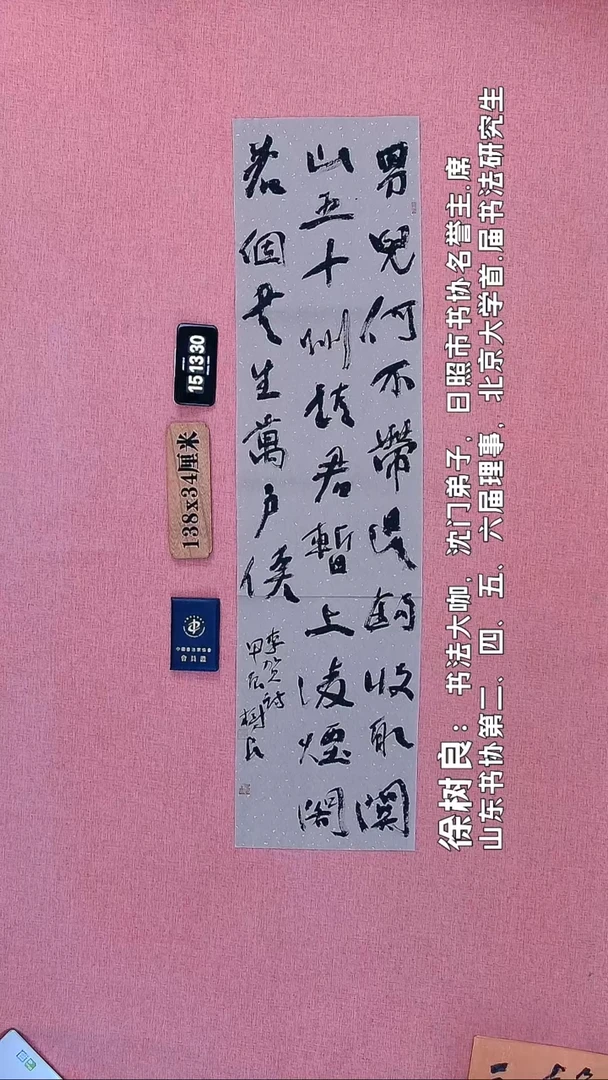 男兒何不帶吳鉤收取關
山五十州請君暫上凌煙閣
若個书生萬户侯
李贺诗
甲辰樹良
151330
138x34厘米
中國書法家協會
會員證
徐树良：书法大咖，沈门弟子，日照市书协名誉主.席
山东书协第二、四、五、六届理事，北京大学首.届书法研究生